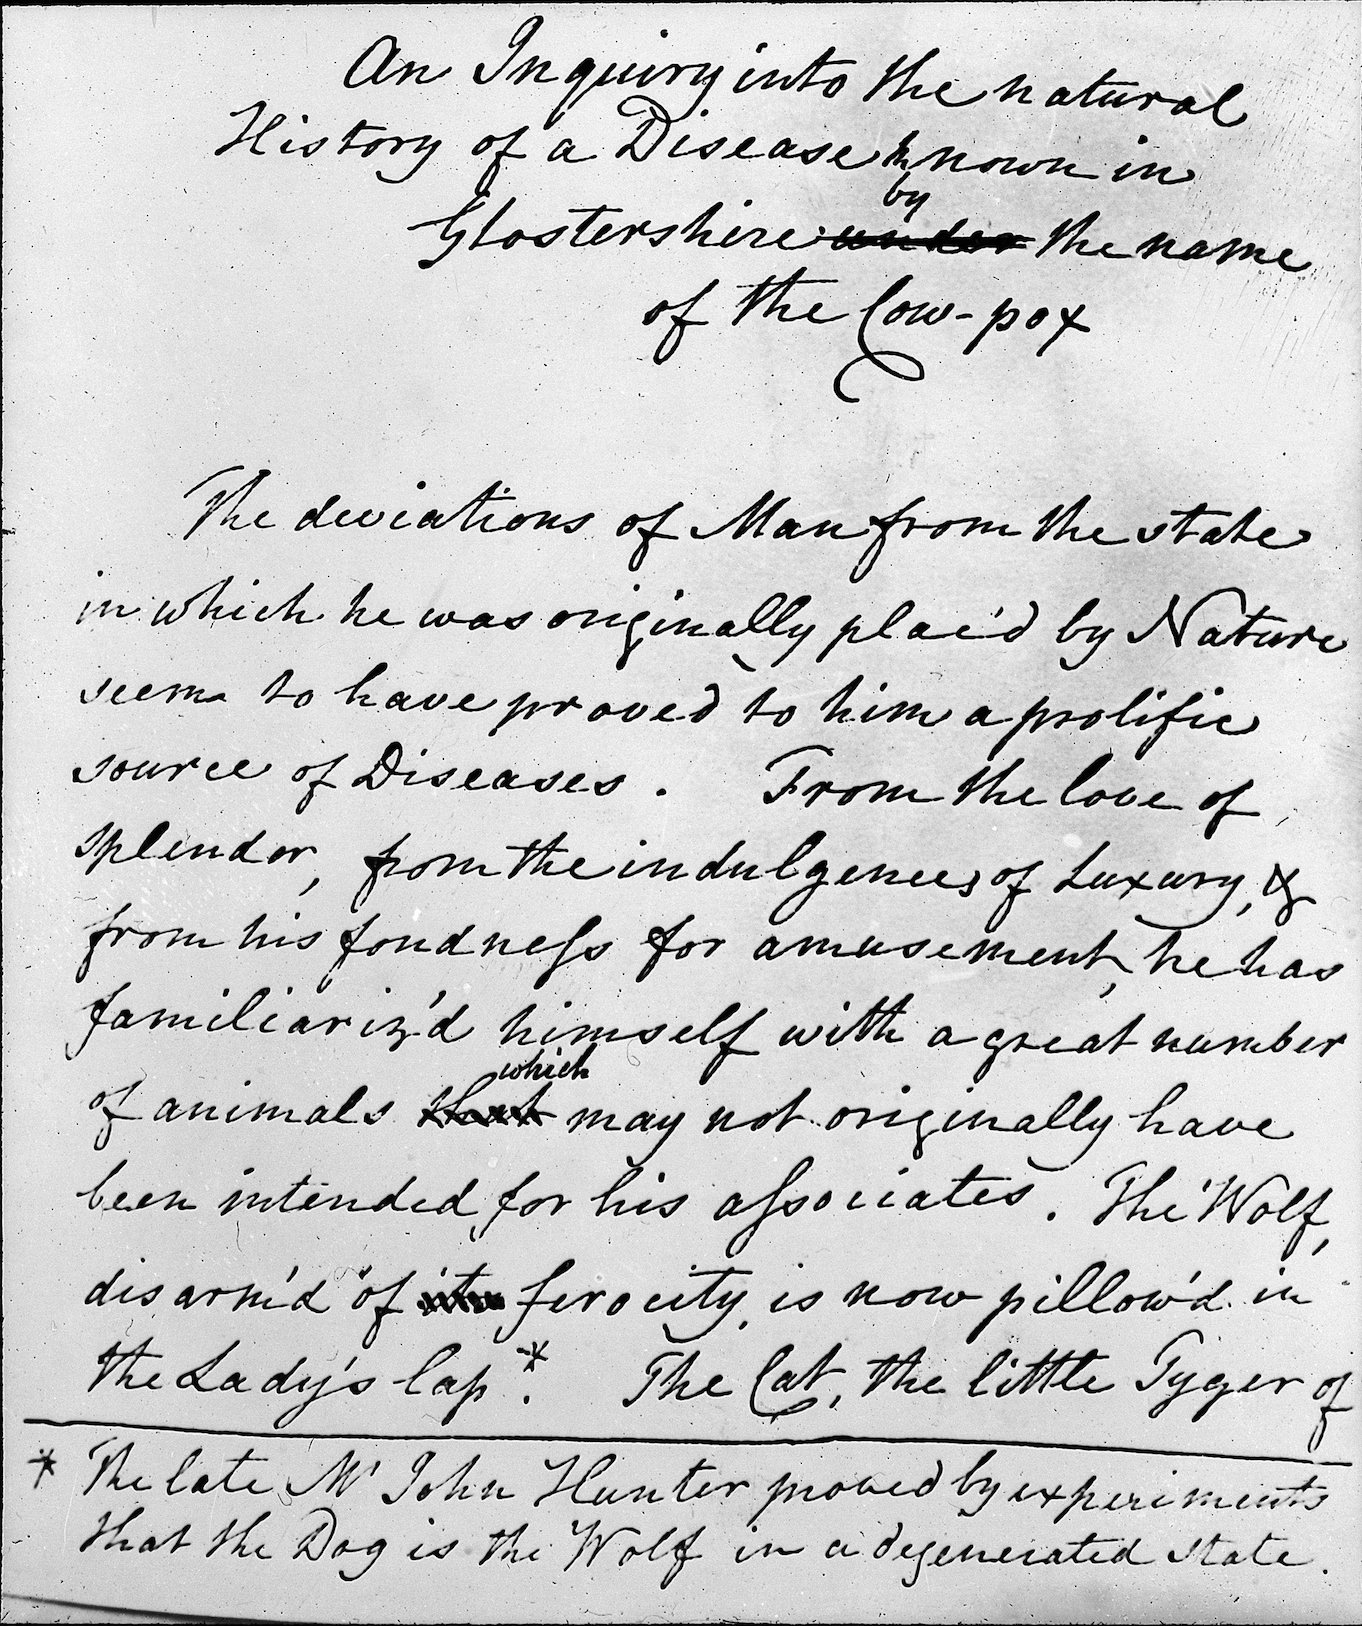 An Inquiry into the natural
History of a Disease known in
by
Glostershire under the name
of the Cow-pox
The deviations of Man from the state
in which he was originally plac'd by Nature
seem to have proved to him a prolific
source of Diseases. From the love of
splendor, from the indulgences of Luxury, &
from his fondneſs for amusement, he has
familiariz'd himself with a great number
which
of animals that may not originally have
been intended for his aſsociates. The Wolf,
disarm'd of its ferocity, is now pillow'd in
the Lady's lap*. The Cat, the little Tyger of
* The late Mr John Hunter proved by experiments
that the Dog is the Wolf in a degenerated state.